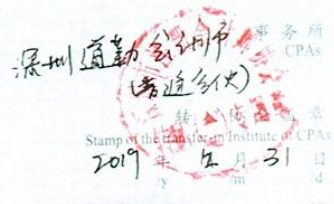 事务所
CPAs
深圳道勤会计师
(普通合伙)
转入协会盖章
Stamp of the transfer-in Institute of CPAs
2019 年 12 月 31 日
/y /m /d